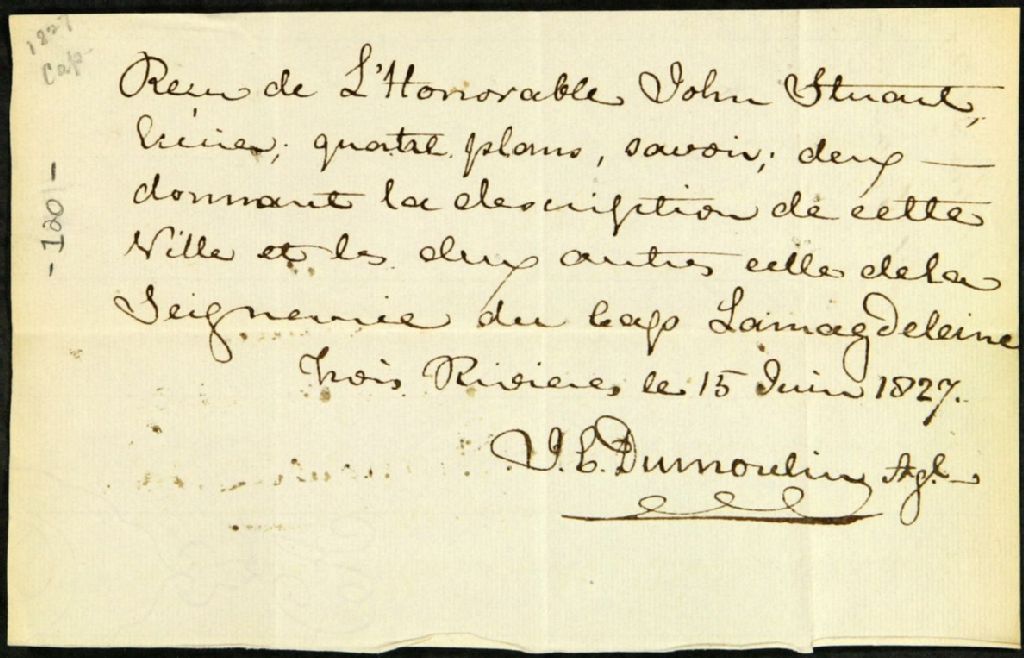 1827
Cap
-120-
Recu de L'Honorable John Stuart,
Ecuier; quatre plans, savoir; deux —
donnant la description de cette
Ville et les deux autres celle de la
Seigneurie du Cap Lamagdeleine
Trois Rivieres le 15 Juin 1827.
J. E. Dumoulin Agt